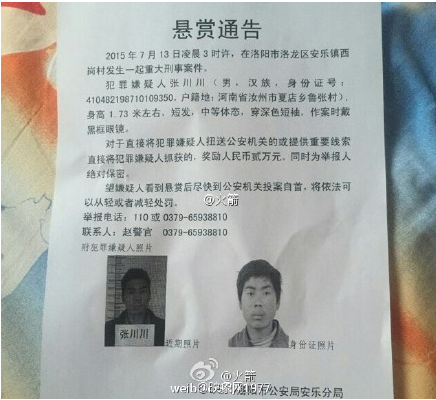 悬赏通告
2015年7月13日凌晨3时许，在洛阳市洛龙区安乐镇西
岗村发生一起重大刑事案件。
犯罪嫌疑人张川川（男，汉族，身份证号：
410482198710109350，户籍地：河南省汝州市夏店乡鲁张村），
身高1.73米左右，短发，中等体态，穿深色短袖，作案时戴
黑框眼镜。
对于直接将犯罪嫌疑人扭送公安机关的或提供重要线索
直接将犯罪嫌疑人抓获的，奖励人民币贰万元，同时为举报人
绝对保密。
望嫌疑人看到悬赏后尽快到公安机关投案自首，将依法可
以从轻或者减轻处罚。
@火箭
举报电话：110或0379-65938810
联系人：赵警官 0379-65938810
附犯罪嫌疑人照片
张川川
近期照片
身份证照片
@火箭
洛阳市公安局安乐分局